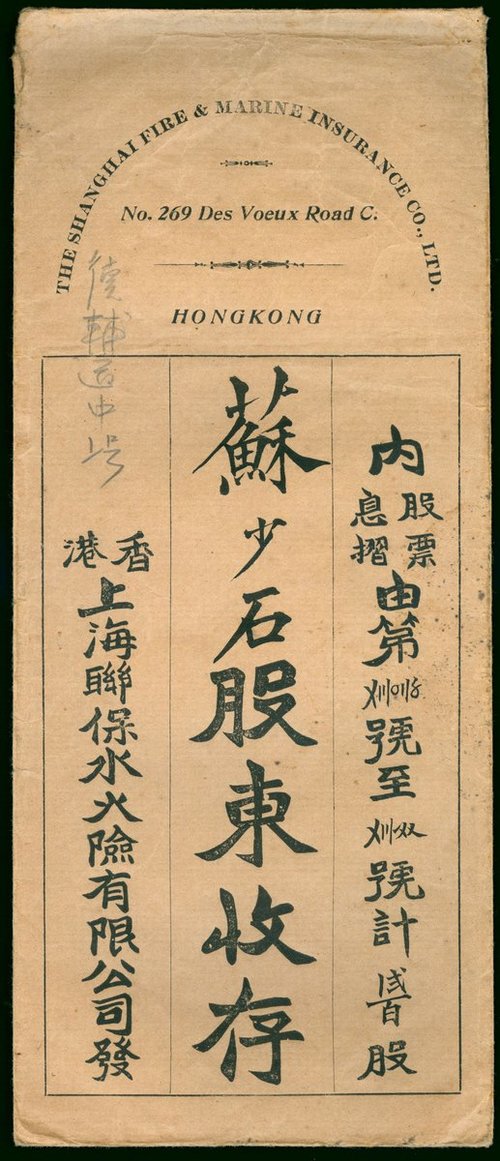 THE SHANGHAI FIRE & MARINE INSURANCE CO., LTD.
No. 269 Des Voeux Road C.
HONGKONG
內股票息摺由第號至號計貳百股
蘇少石股東收存
香港上海聯保水火險有限公司發
德輔道中号